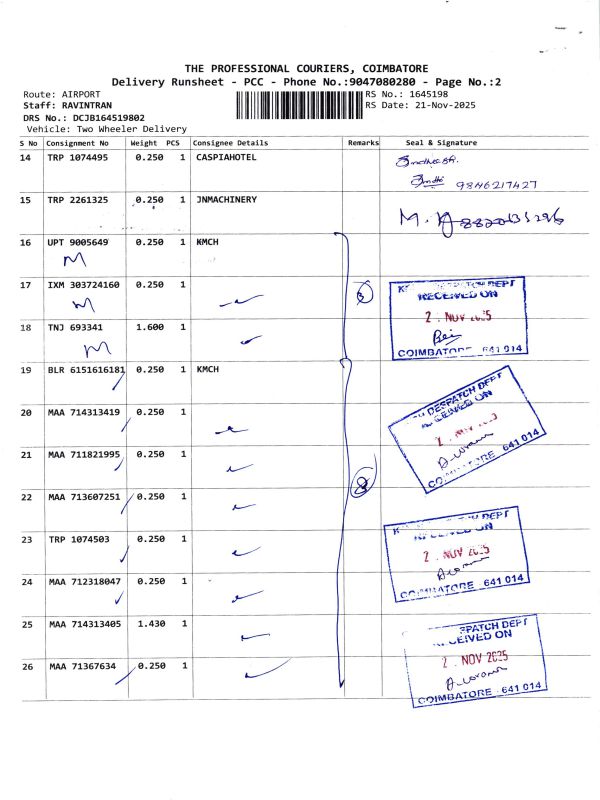 THE PROFESSIONAL COURIERS, COIMBATORE
Delivery Runsheet - PCC - Phone No.:9047080280 - Page No.:2
Route: AIRPORT
RS No.: 1645198
Staff: RAVINTRAN
RS Date: 21-Nov-2025
DRS No.: DCJB164519802
Vehicle: Two Wheeler Delivery
S No Consignment No Weight PCS Consignee Details Remarks Seal & Signature
14 TRP 1074495 0.250 1 CASPIAHOTEL
9846217427
15 TRP 2261325 0.250 1 JNMACHINERY
16 UPT 9005649 0.250 1 KMCH
M
17 IXM 303724160 0.250 1
M
3
DESPATCH DEPT
RECEIVED ON
2 NOV
COIMBATORE 641 014
18 TNJ 693341 1.600 1
M
19 BLR 6151616181 0.250 1 KMCH
20 MAA 714313419 0.250 1
DESPATCH DEPT
COIMBATORE 641 014
21 MAA 711821995 0.250 1
22 MAA 713607251 0.250 1
8
DEPT
2 NOV 2025
COIMBATORE 641 014
23 TRP 1074503 0.250 1
24 MAA 712318047 0.250 1
25 MAA 714313405 1.430 1
DESPATCH DEPT
RECEIVED ON
2 NOV 2025
COIMBATORE 641 014
26 MAA 71367634 0.250 1